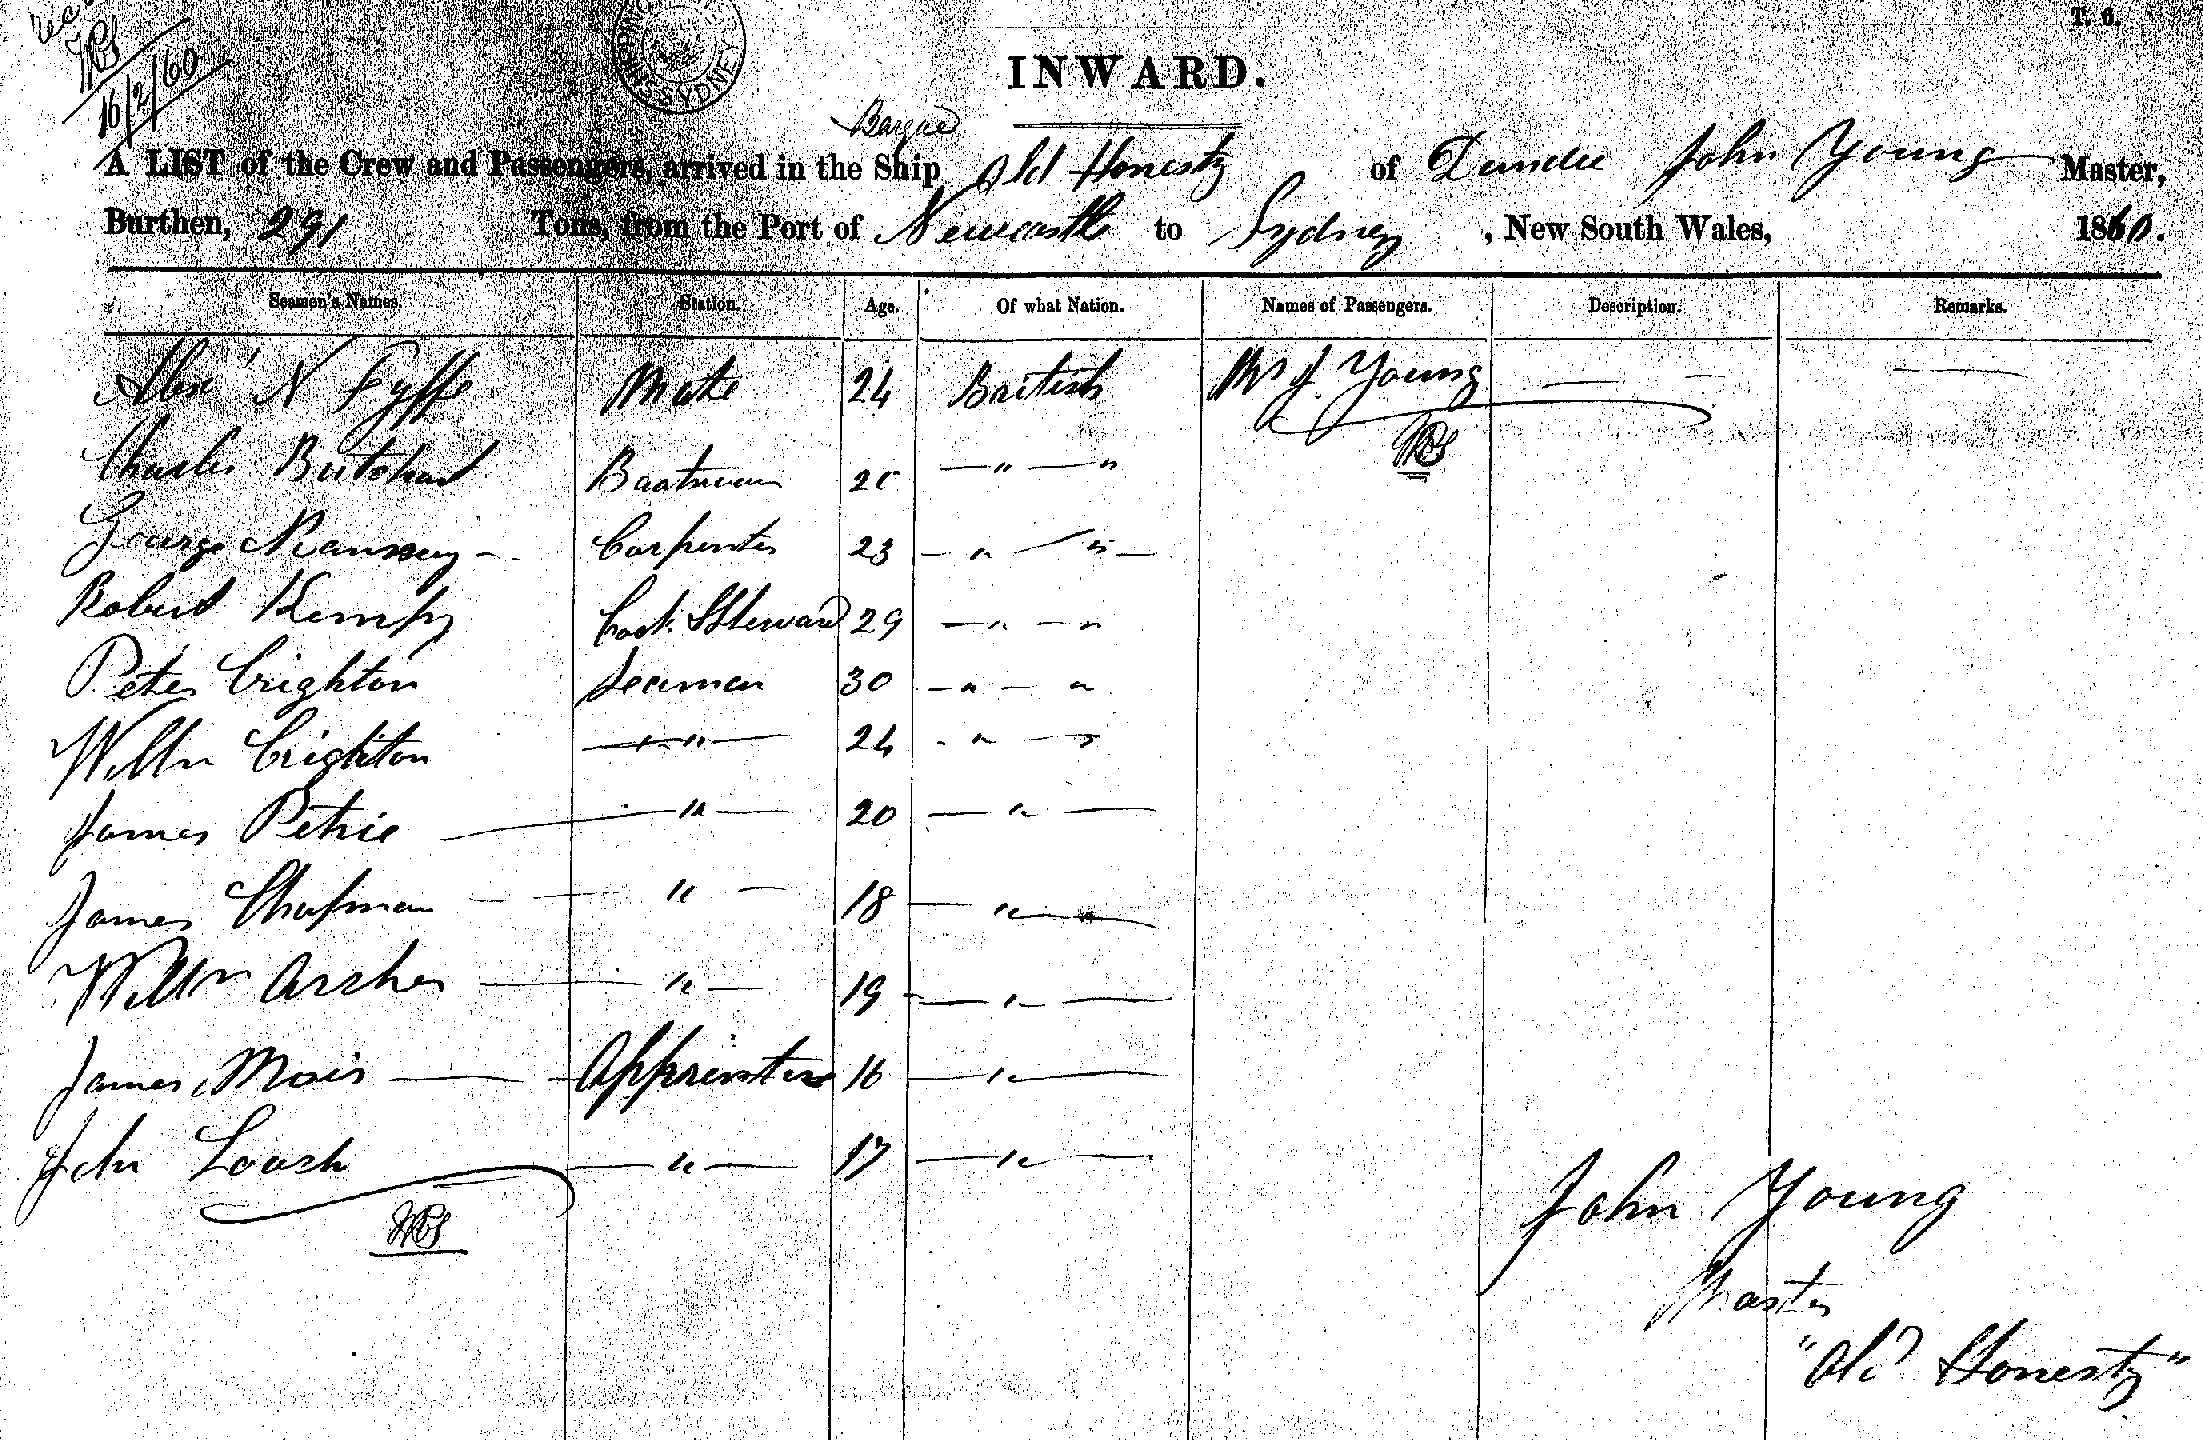 T. 6.
16/2/60
SYDNEY
INWARD.
Barque
A LIST of the Crew and Passengers, arrived in the Ship Old Honesty of Dundee John Young Master,
Burthen, 291 Tons, from the Port of Newcastle to Sydney , New South Wales, 1860.
Seamen's Names. Station. Age. Of what Nation. Names of Passengers. Description. Remarks.
Alexr N Fyffe Mate 24 British Mrs J. Young — — —
Charles Butchard Boatswain 25 — " — "
George Ramsay - Carpenter 23 — " — " —
Robert Kempy Cook & Steward 29 — " — "
Peter Crighton Seaman 30 — " — "
Willm Crighton — " " — 24 - " — "
James Petrie — " — 20 — " —
James Chapman — " — 18 — " — "
Willm Archer — " — 19 — " —
James Mair — Apprentice 16 — " —
John Loash — " — 17 — " —
John Young
Master
"Old Honesty"